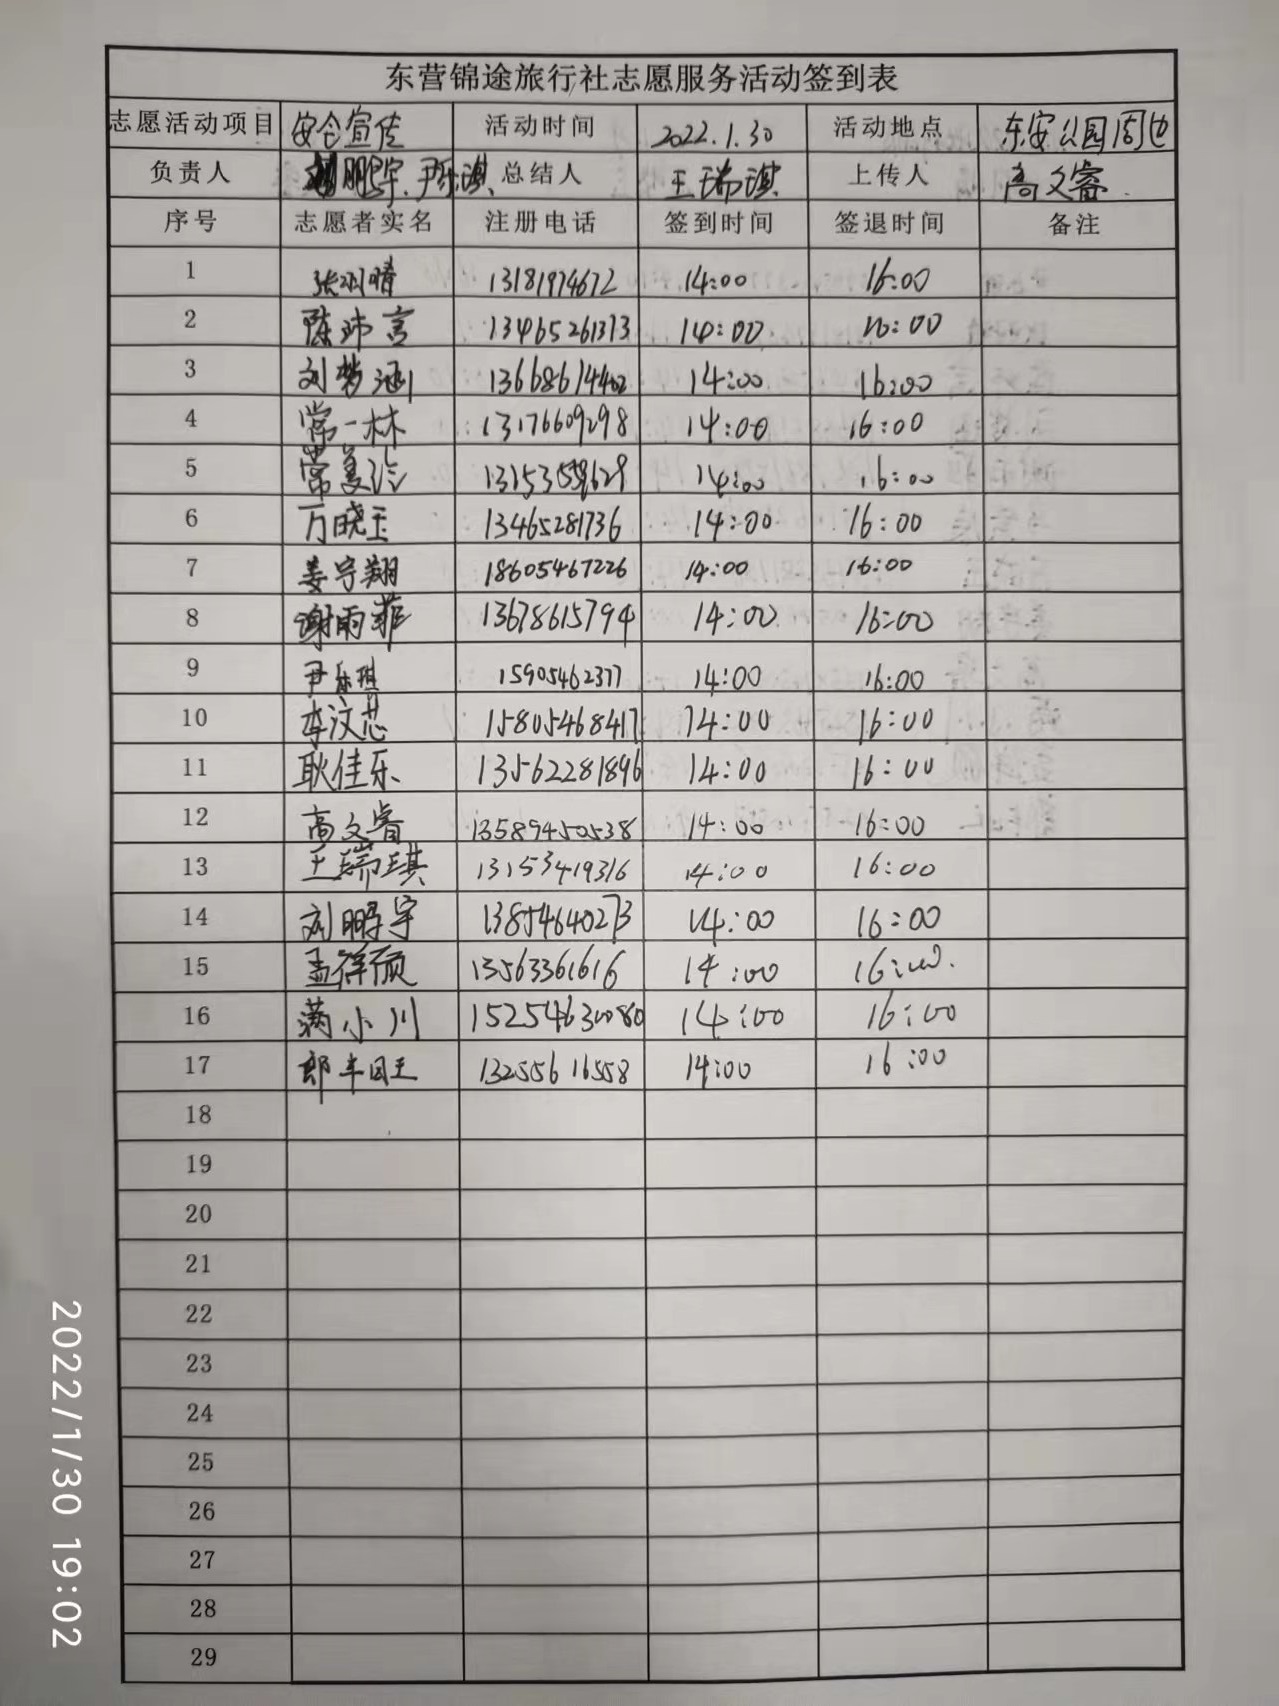 东营锦途旅行社志愿服务活动签到表
志愿活动项目 安全宣传 活动时间 2022.1.30 活动地点 东安公园周边
负责人 刘鹏宇、尹乐琪 总结人 王瑞琪 上传人 高文睿
序号 志愿者实名 注册电话 签到时间 签退时间 备注
1 14:00 16:00
2 陈玮言 13465261373 14:00 16:00
3 刘梦涵 13668614402 14:00 16:00
4 常一林 13176609298 14:00 16:00
5 14:00 16:00
6 万晓玉 13465281736 14:00 16:00
7 姜宇翔 18605467226 14:00 16:00
8 谢雨菲 13678615794 14:00 16:00
9 尹乐琪 15905462377 14:00 16:00
10 李汶芯 15805468417 14:00 16:00
11 耿佳乐 13562281896 14:00 16:00
12 高文睿 13589450538 14:00 16:00
13 王瑞琪 13153419316 14:00 16:00
14 刘鹏宇 13854640273 14:00 16:00
15 孟祥硕 13563361616 14:00 16:00.
16 满小川 15254630080 14:00 16:00
17 13255616558 14:00 16:00
18
19
20
21
22
23
24
25
26
27
28
29
2022/1/30 19:02